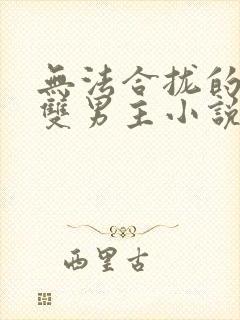 無法合拢的
雙男主小説
西里古